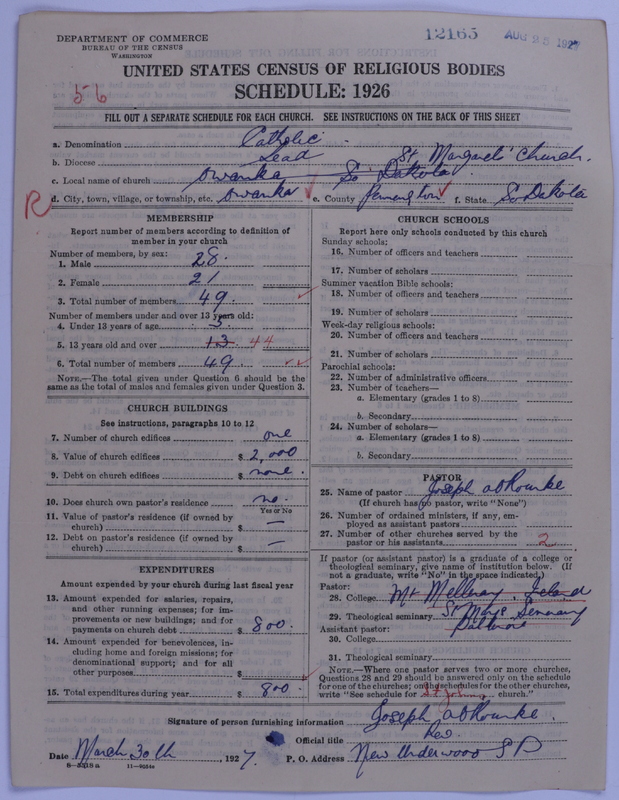 DEPARTMENT OF COMMERCE
BUREAU OF THE CENSUS
WASHINGTON
12165
AUG 25 1927
UNITED STATES CENSUS OF RELIGIOUS BODIES
56
SCHEDULE: 1926
FILL OUT A SEPARATE SCHEDULE FOR EACH CHURCH. SEE INSTRUCTIONS ON THE BACK OF THIS SHEET
a. Denomination Catholic
b. Diocese Lead St Margaret' Church.
c. Local name of church Owanka So Dakota
R d. City, town, village, or township, etc. Owanka e. County Pennington f. State So Dakota
MEMBERSHIP
Report number of members according to definition of
member in your church
Number of members, by sex:
1. Male 28.
2. Female 21
3. Total number of members 49.
Number of members under and over 13 years old:
4. Under 13 years of age 5.
5. 13 years old and over 13 44
6. Total number of members 49.
NOTE.—The total given under Question 6 should be the
same as the total of males and females given under Question 3.
CHURCH BUILDINGS
See instructions, paragraphs 10 to 12
7. Number of church edifices one
8. Value of church edifices $ 2,000
9. Debt on church edifices $ none.
10. Does church own pastor's residence no.
Yes or No
11. Value of pastor's residence (if owned by
church) $ —
12. Debt on pastor's residence (if owned by
church) $ —
EXPENDITURES
Amount expended by your church during last fiscal year
13. Amount expended for salaries, repairs,
and other running expenses; for im-
provements or new buildings; and for
payments on church debt $ 800.
14. Amount expended for benevolences, in-
cluding home and foreign missions; for
denominational support; and for all
other purposes $
15. Total expenditures during year $ 800.
CHURCH SCHOOLS
Report here only schools conducted by this church
Sunday schools:
16. Number of officers and teachers
17. Number of scholars
Summer vacation Bible schools:
18. Number of officers and teachers
19. Number of scholars
Week-day religious schools:
20. Number of officers and teachers
21. Number of scholars
Parochial schools:
22. Number of administrative officers
23. Number of teachers—
a. Elementary (grades 1 to 8)
b. Secondary
24. Number of scholars—
a. Elementary (grades 1 to 8)
b. Secondary
PASTOR
25. Name of pastor Joseph A O'Rourke
(If church has no pastor, write "None")
26. Number of ordained ministers, if any, em-
ployed as assistant pastors
27. Number of other churches served by the
pastor or his assistants 2
If pastor (or assistant pastor) is a graduate of a college or
theological seminary, give name of institution below. (If
not a graduate, write "No" in the space indicated.)
Pastor:
28. College Mt Melleray, Ireland
29. Theological seminary St Marys Seminary
Assistant pastor: Baltimore
30. College
31. Theological seminary
NOTE.—Where one pastor serves two or more churches,
Questions 28 and 29 should be answered only on the schedule
for one of the churches; on schedules for the other churches,
write "See schedule for St Johns church."
Signature of person furnishing information Joseph A O'Rourke.
Official title Rev.
Date March 30th, 1927. P. O. Address New Underwood S D